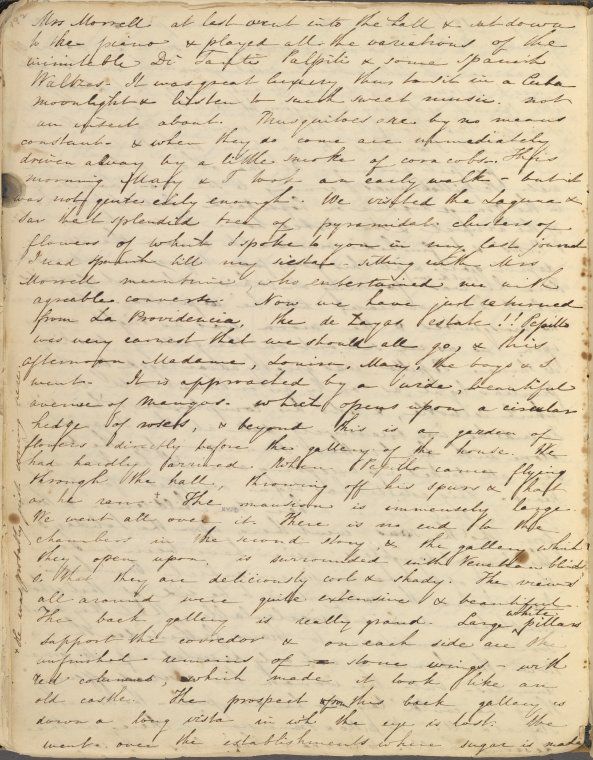 Mrs Morrell at last went into the Hall & sat down
to the piano & played all the variations of the
inimitable Di Tanti Palpiti & some Spanish
Waltzes. It was great luxury thus to sit in a Cuba
moonlight & listen to such sweet music. not
an insect about. Musquitoes are by no means
constant. & when they do come are immediately
driven away by a little smoke of corn cobs. This
morning Mary & I took an early walk - but it
was not quite early enough. We visited the Laguna &
saw that splendid tree of pyramidal clusters of
flowers of which I spoke to you in my last journal
I read Spanish till my siesta. sitting with Mrs
Morrell meantime who entertained me with
agreable converse. Now we have just returned
from La Providencia, the de Zayas estate!! Pepillo
was very earnest that we should all go, & this
afternoon Madame, Louisa, Mary, the boys & I
went. It is approached by a wide, beautiful
avenue of Mangos. which opens upon a circular
hedge of roses, & beyond this is a garden of
flowers directly before the gallery of the house. We
had hardly arrived when Pepillo came flying
through the hall, throwing off his spurs & hat
as he ran. The mansion is immensely large
We went all over it. There is no end to the
chambers in the second story & the gallery which
they open upon, is surrounded with Venetian blinds
so that they are deliciously cool & shady. The views
all around were quite extensive & beautiful
The back gallery is really grand. Large white pillars
support the corredor & on each side are the
unfinished remains of stone wings - with
red columns, which made it look like an
old castle. The prospect from this back gallery is
down a long vista in wh the eye is lost. We
went over the establishments where sugar is made